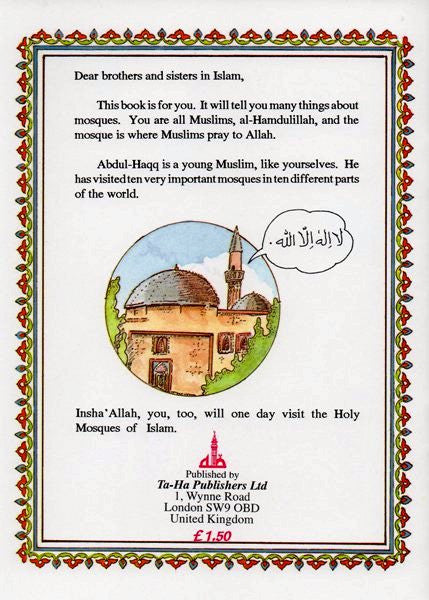 Dear brothers and sisters in Islam,
This book is for you. It will tell you many things about
mosques. You are all Muslims, al-Hamdulillah, and the
mosque is where Muslims pray to Allah.
Abdul-Haqq is a young Muslim, like yourselves. He
has visited ten very important mosques in ten different parts
of the world.
لا اله الا الله.
Insha'Allah, you, too, will one day visit the Holy
Mosques of Islam.
Published by
Ta-Ha Publishers Ltd
1, Wynne Road
London SW9 OBD
United Kingdom
£1.50